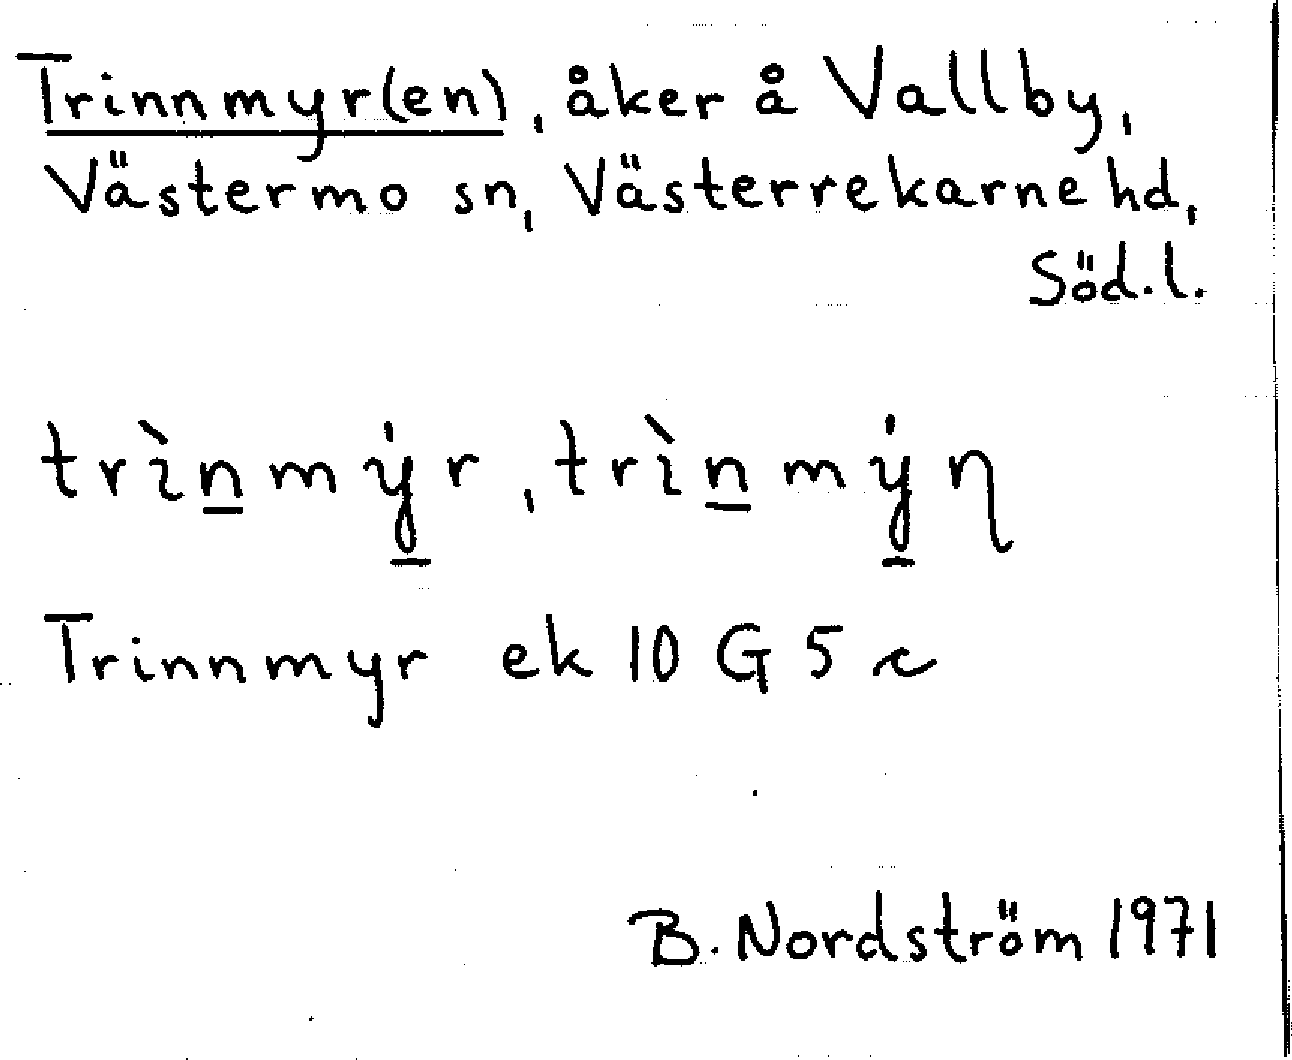 Trinnmyr(en), åker å Vallby,
Västermo sn, Västerrekarne hd,
Söd.l.
trìn̲mẏ̲r, trìn̲mẏ̲ɳ
Trinnmyr ek 10 G 5 c
B. Nordström 1971